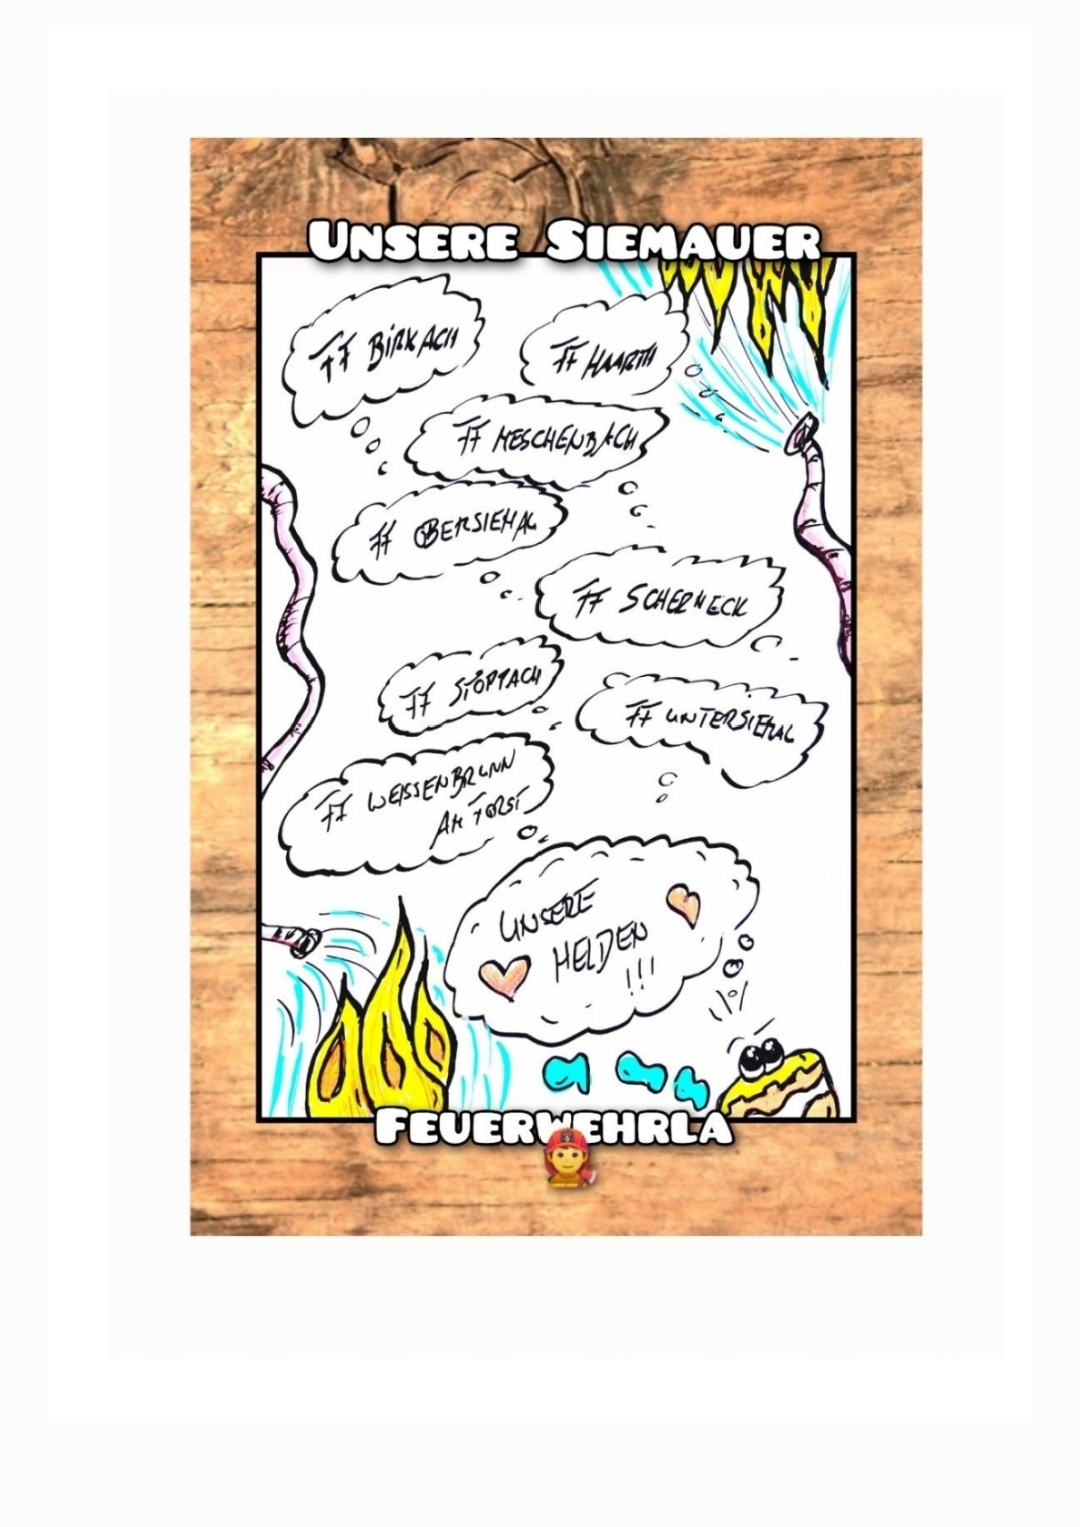 UNSERE SIEMAUER
FF BIRKACH
FF HAARTH
FF MESCHENBACH
FF OBERSIEMAU
FF SCHERNECK
FF STÖPPACH
FF UNTERSIEMAU
FF WEISSENBRUNN
AM FORST
UNSERE
HELDEN
!!!
FEUERWEHRLA